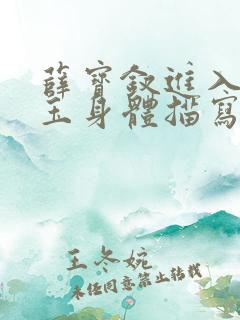 薛寶釵進入
玉身體描寫
王冬婉
未经同意禁止转载